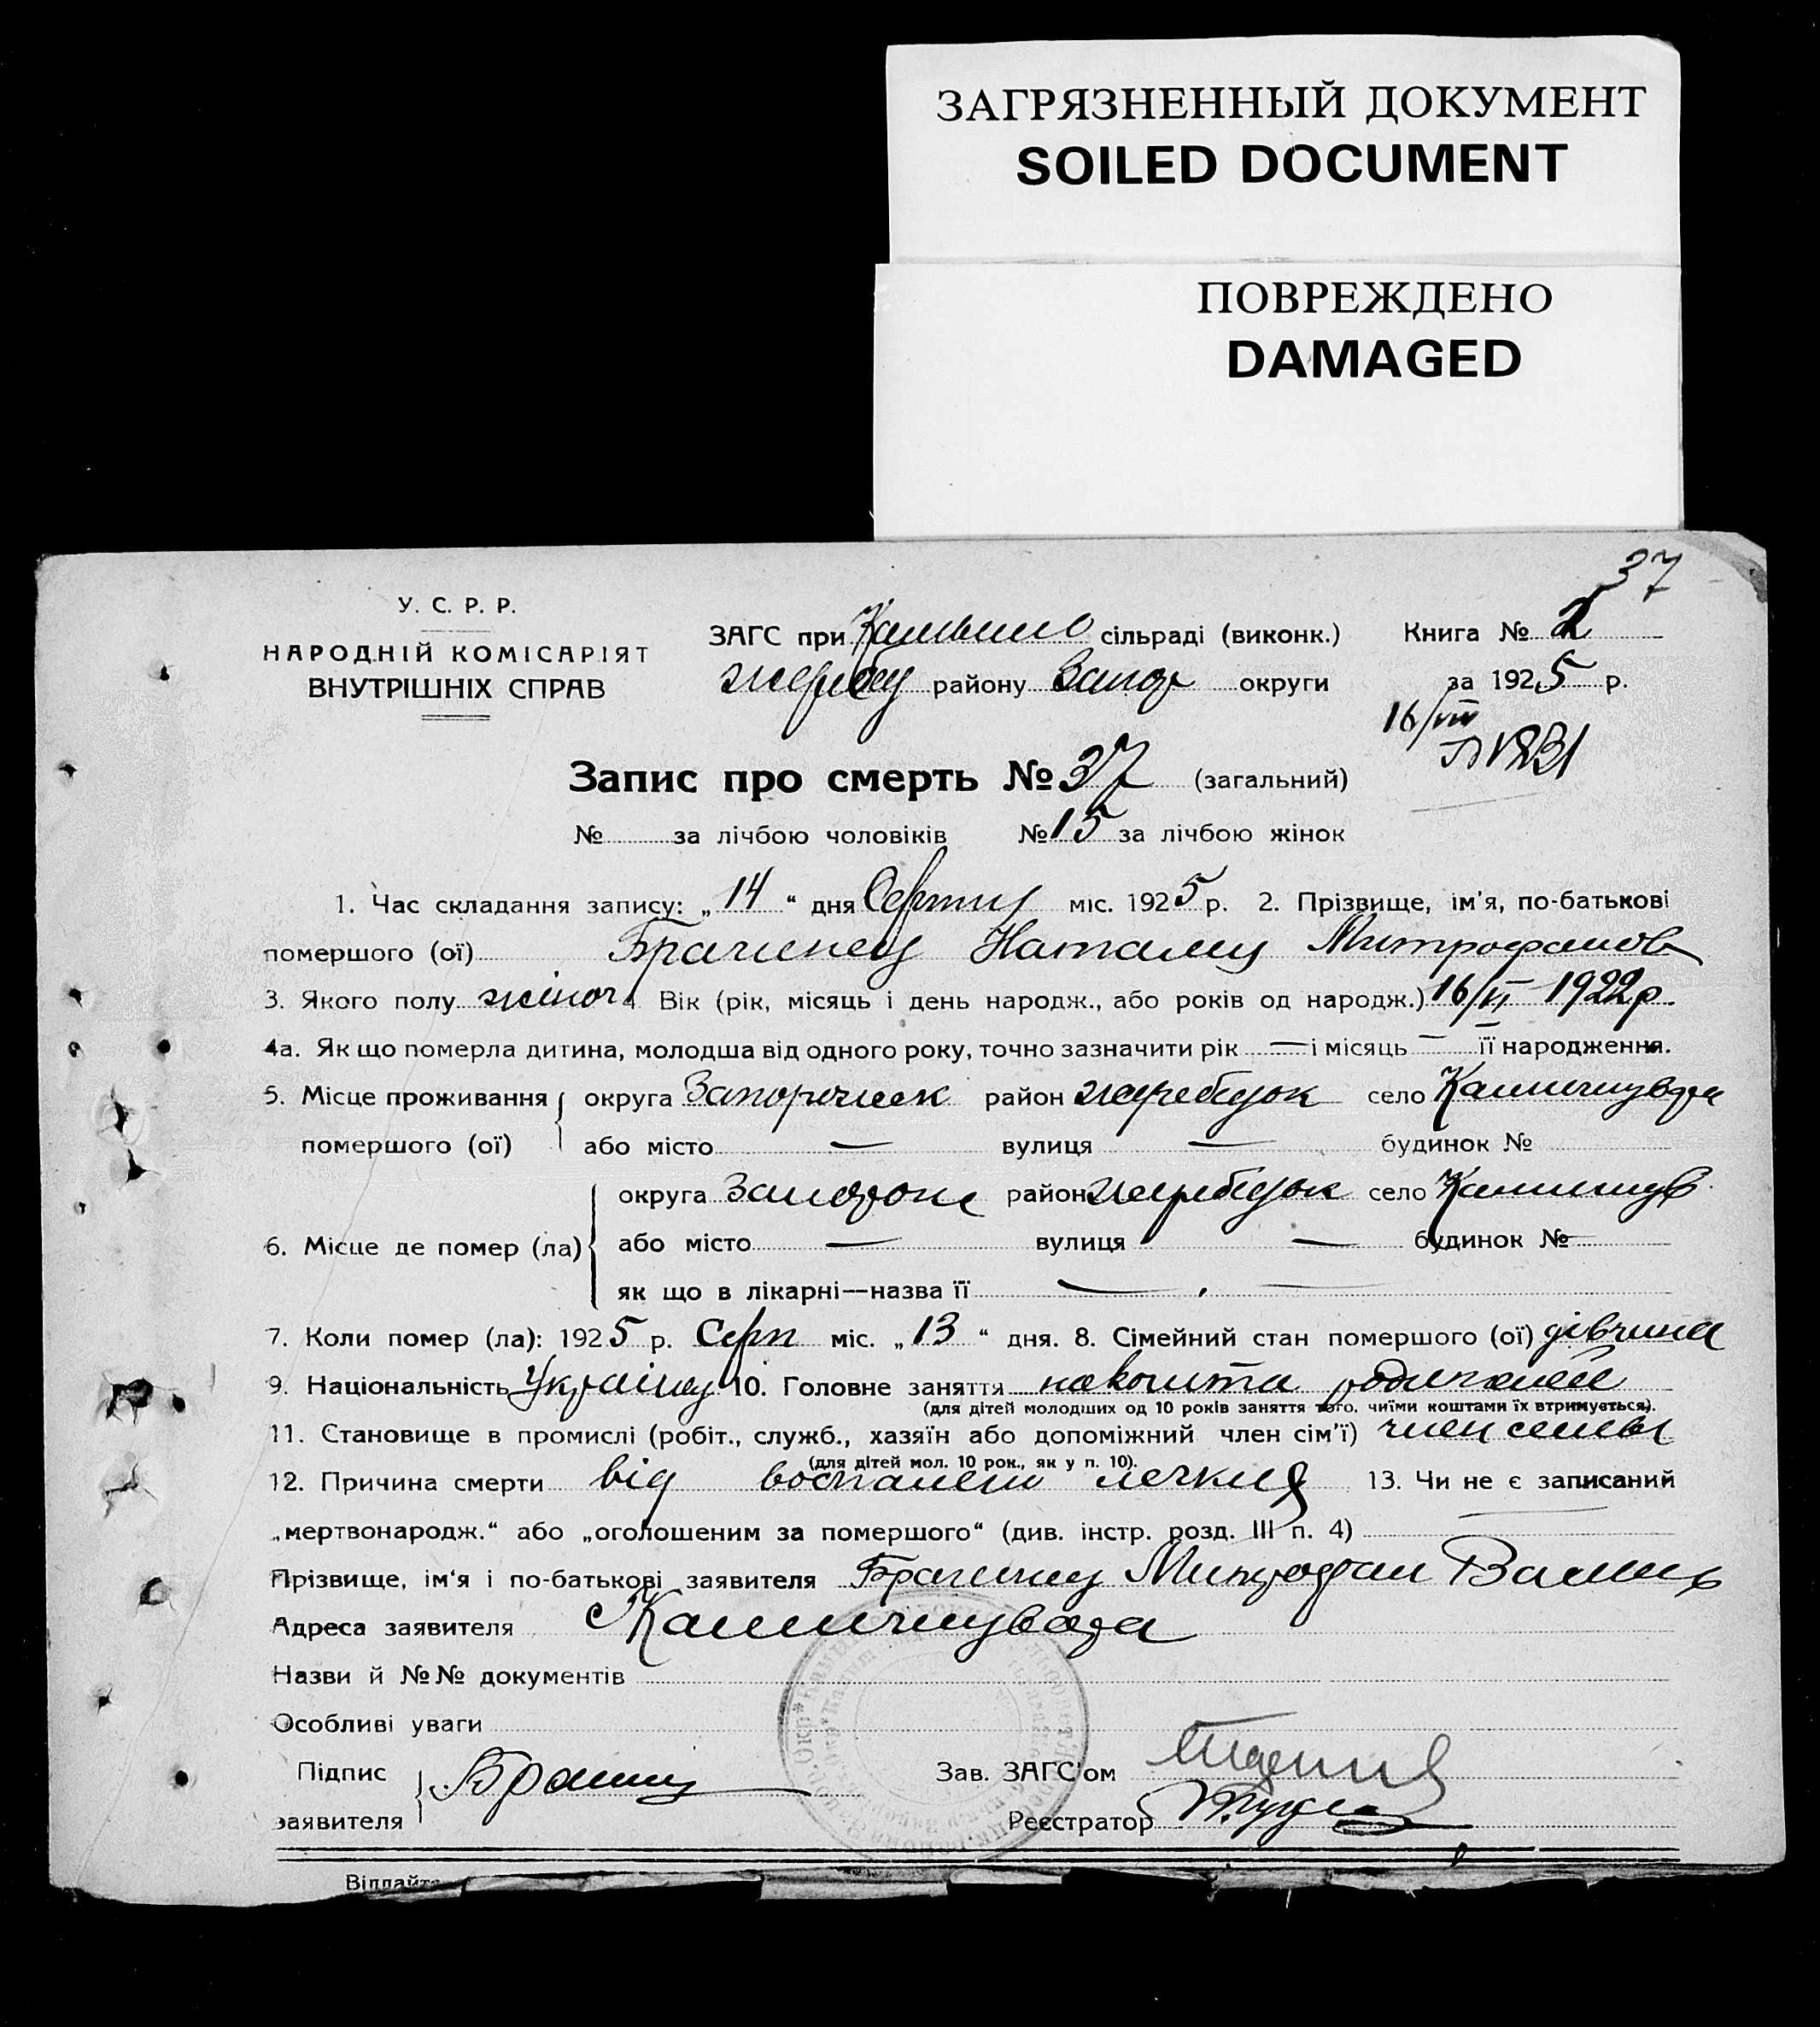 ЗАГРЯЗНЕННЫЙ ДОКУМЕНТ
SOILED DOCUMENT
ПОВРЕЖДЕНО
DAMAGED
37
У. С. Р. Р.
НАРОДНІЙ КОМІСАРІЯТ
ВНУТРІШНІХ СПРАВ
ЗАГС при сільраді (виконк.) Книга № 2
жеребц району Запор округи за 1925 р.
16/VIII
Запис про смерть № 37 (загальний)
№ за лічбою чоловіків № 15 за лічбою жінок
1. Час складання запису: „14“ дня Серпня міс. 1925 р. 2. Прізвище, ім'я, по-батькові
помершого (ої) Наталия Митрофанов
3. Якого полу жіноч 4. Вік (рік, місяць і день народж., або років од народж.) 16/VI 1922 р.
4а. Як що померла дитина, молодша від одного року, точно зазначити рік — і місяць — її народження.
5. Місце проживання округа район жеребцок село
помершого (ої) або місто — вулиця — будинок №
округа район жеребцок село
6. Місце де помер (ла) або місто — вулиця — будинок №
як що в лікарні—назва її —
7. Коли помер (ла): 1925 р. Серп міс. „13“ дня. 8. Сімейний стан помершого (ої) дівчина
9. Національність 10. Головне заняття на кошта родителей
(для дітей молодших од 10 років заняття того, чиїми коштами їх втримується).
11. Становище в промислі (робіт., служб., хазяїн або допоміжний член сім'ї) член семьи
(для дітей мол. 10 рок., як у п. 10).
12. Причина смерти від воспалени легких 13. Чи не є записаний
„мертвонародж.“ або „оголошеним за помершого“ (див. інстр. розд. III п. 4)
Прізвище, ім'я і по-батькові заявителя Митрофан
Адреса заявителя с
Назви й №№ документів
Особливі уваги
Підпис Зав. ЗАГС'ом
заявителя Реєстратор